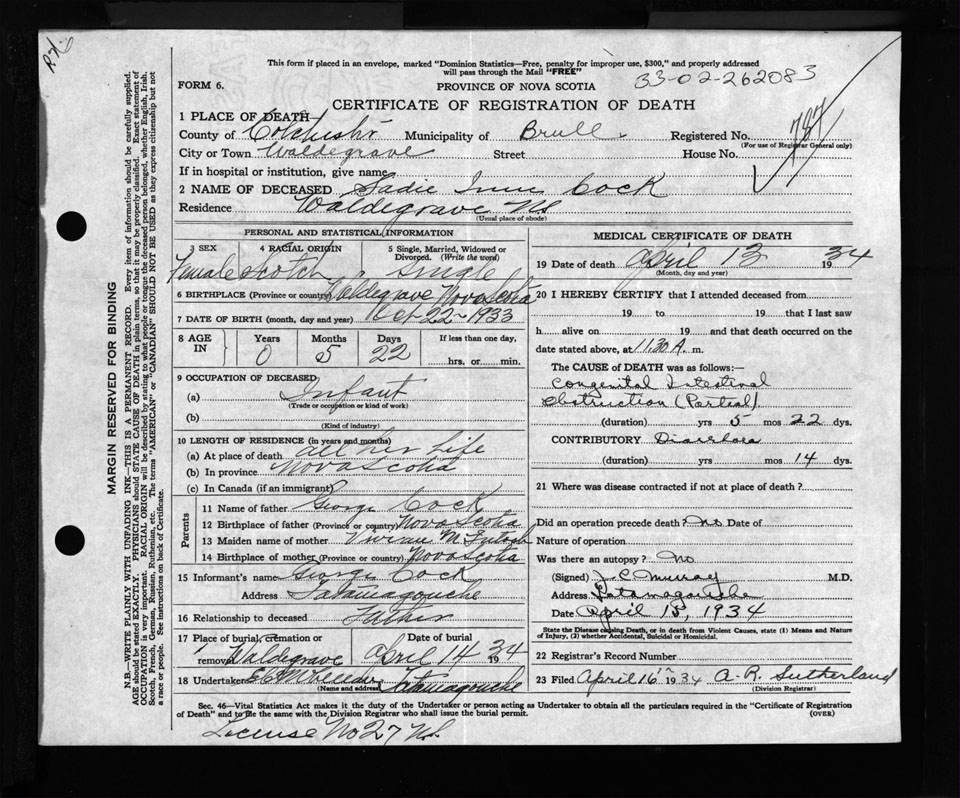 This form if placed in an envelope, marked "Dominion Statistics—Free, penalty for improper use, $300," and properly addressed
will pass through the Mail "FREE"
33-02-262083
FORM 6.
PROVINCE OF NOVA SCOTIA
CERTIFICATE OF REGISTRATION OF DEATH
1 PLACE OF DEATH—
County of Colchester Municipality of Brull Registered No. 787
(For use of Registrar General only)
City or Town Waldegrave Street House No.
If in hospital or institution, give name
2 NAME OF DECEASED Sadie Cock
Residence Waldegrave NS
(Usual place of abode)
MARGIN RESERVED FOR BINDING
N.B.—WRITE PLAINLY WITH UNFADING INK—THIS IS A PERMANENT RECORD. Every item of information should be carefully supplied.
AGE should be stated EXACTLY. PHYSICIANS should STATE CAUSE OF DEATH in plain terms, so that it may be properly classified. Exact statement of
OCCUPATION is very important. RACIAL ORIGIN will be described by stating to what people or tongue the deceased person belonged, whether English, Irish,
Scotch, French, German, Russian, Ruthenian, etc. The terms "AMERICAN" or "CANADIAN" SHOULD NOT BE USED as they express citizenship but not
a race or people. See instructions on back of Certificate.
PERSONAL AND STATISTICAL INFORMATION
3 SEX
Female
4 RACIAL ORIGIN
Scotch
5 Single, Married, Widowed or
Divorced. (Write the word)
Single
6 BIRTHPLACE (Province or country) Waldegrave Nova Scotia
7 DATE OF BIRTH (month, day and year) Oct-22-1933
8 AGE
IN
Years
0
Months
5
Days
22
If less than one day,
hrs. or min.
9 OCCUPATION OF DECEASED
(a) Infant
(Trade or occupation or kind of work)
(b)
(Kind of industry)
10 LENGTH OF RESIDENCE (in years and months)
(a) At place of death all her life
(b) In province Nova Scotia
(c) In Canada (if an immigrant)
Parents
11 Name of father George Cock
12 Birthplace of father (Province or country) Nova Scotia
13 Maiden name of mother Vivian
14 Birthplace of mother (Province or country) Nova Scotia
15 Informant's name George Cock
Address Tatamagouche
16 Relationship to deceased Father
17 Place of burial, cremation or
removal Waldegrave
Date of burial
April 14 1934
18 Undertaker
(Name and address) Tatamagouche
MEDICAL CERTIFICATE OF DEATH
19 Date of death April 13 1934
(Month, day and year)
20 I HEREBY CERTIFY that I attended deceased from
19 to 19 that I last saw
h alive on 19 and that death occurred on the
date stated above, at 11.30 A. m.
The CAUSE of DEATH was as follows:—
Congenital Intestinal
Obstruction (Partial).
(duration) yrs 5 mos 22 dys.
CONTRIBUTORY Diarrhoea
(duration) yrs mos 14 dys.
21 Where was disease contracted if not at place of death?
Did an operation precede death? No Date of
Nature of operation
Was there an autopsy? No
(Signed) J.C. Murray M.D.
Address Tatamagouche
Date April 15, 1934
State the Disease causing Death, or in death from Violent Causes, state (1) Means and Nature
of Injury, (2) whether Accidental, Suicidal or Homicidal.
22 Registrar's Record Number
23 Filed April 16 1934 A.R. Sutherland
(Division Registrar)
Sec. 46—Vital Statistics Act makes it the duty of the Undertaker or person acting as Undertaker to obtain all the particulars required in the "Certificate of Registration
of Death" and to file the same with the Division Registrar who shall issue the burial permit.
(OVER)
License No 27 N.S.